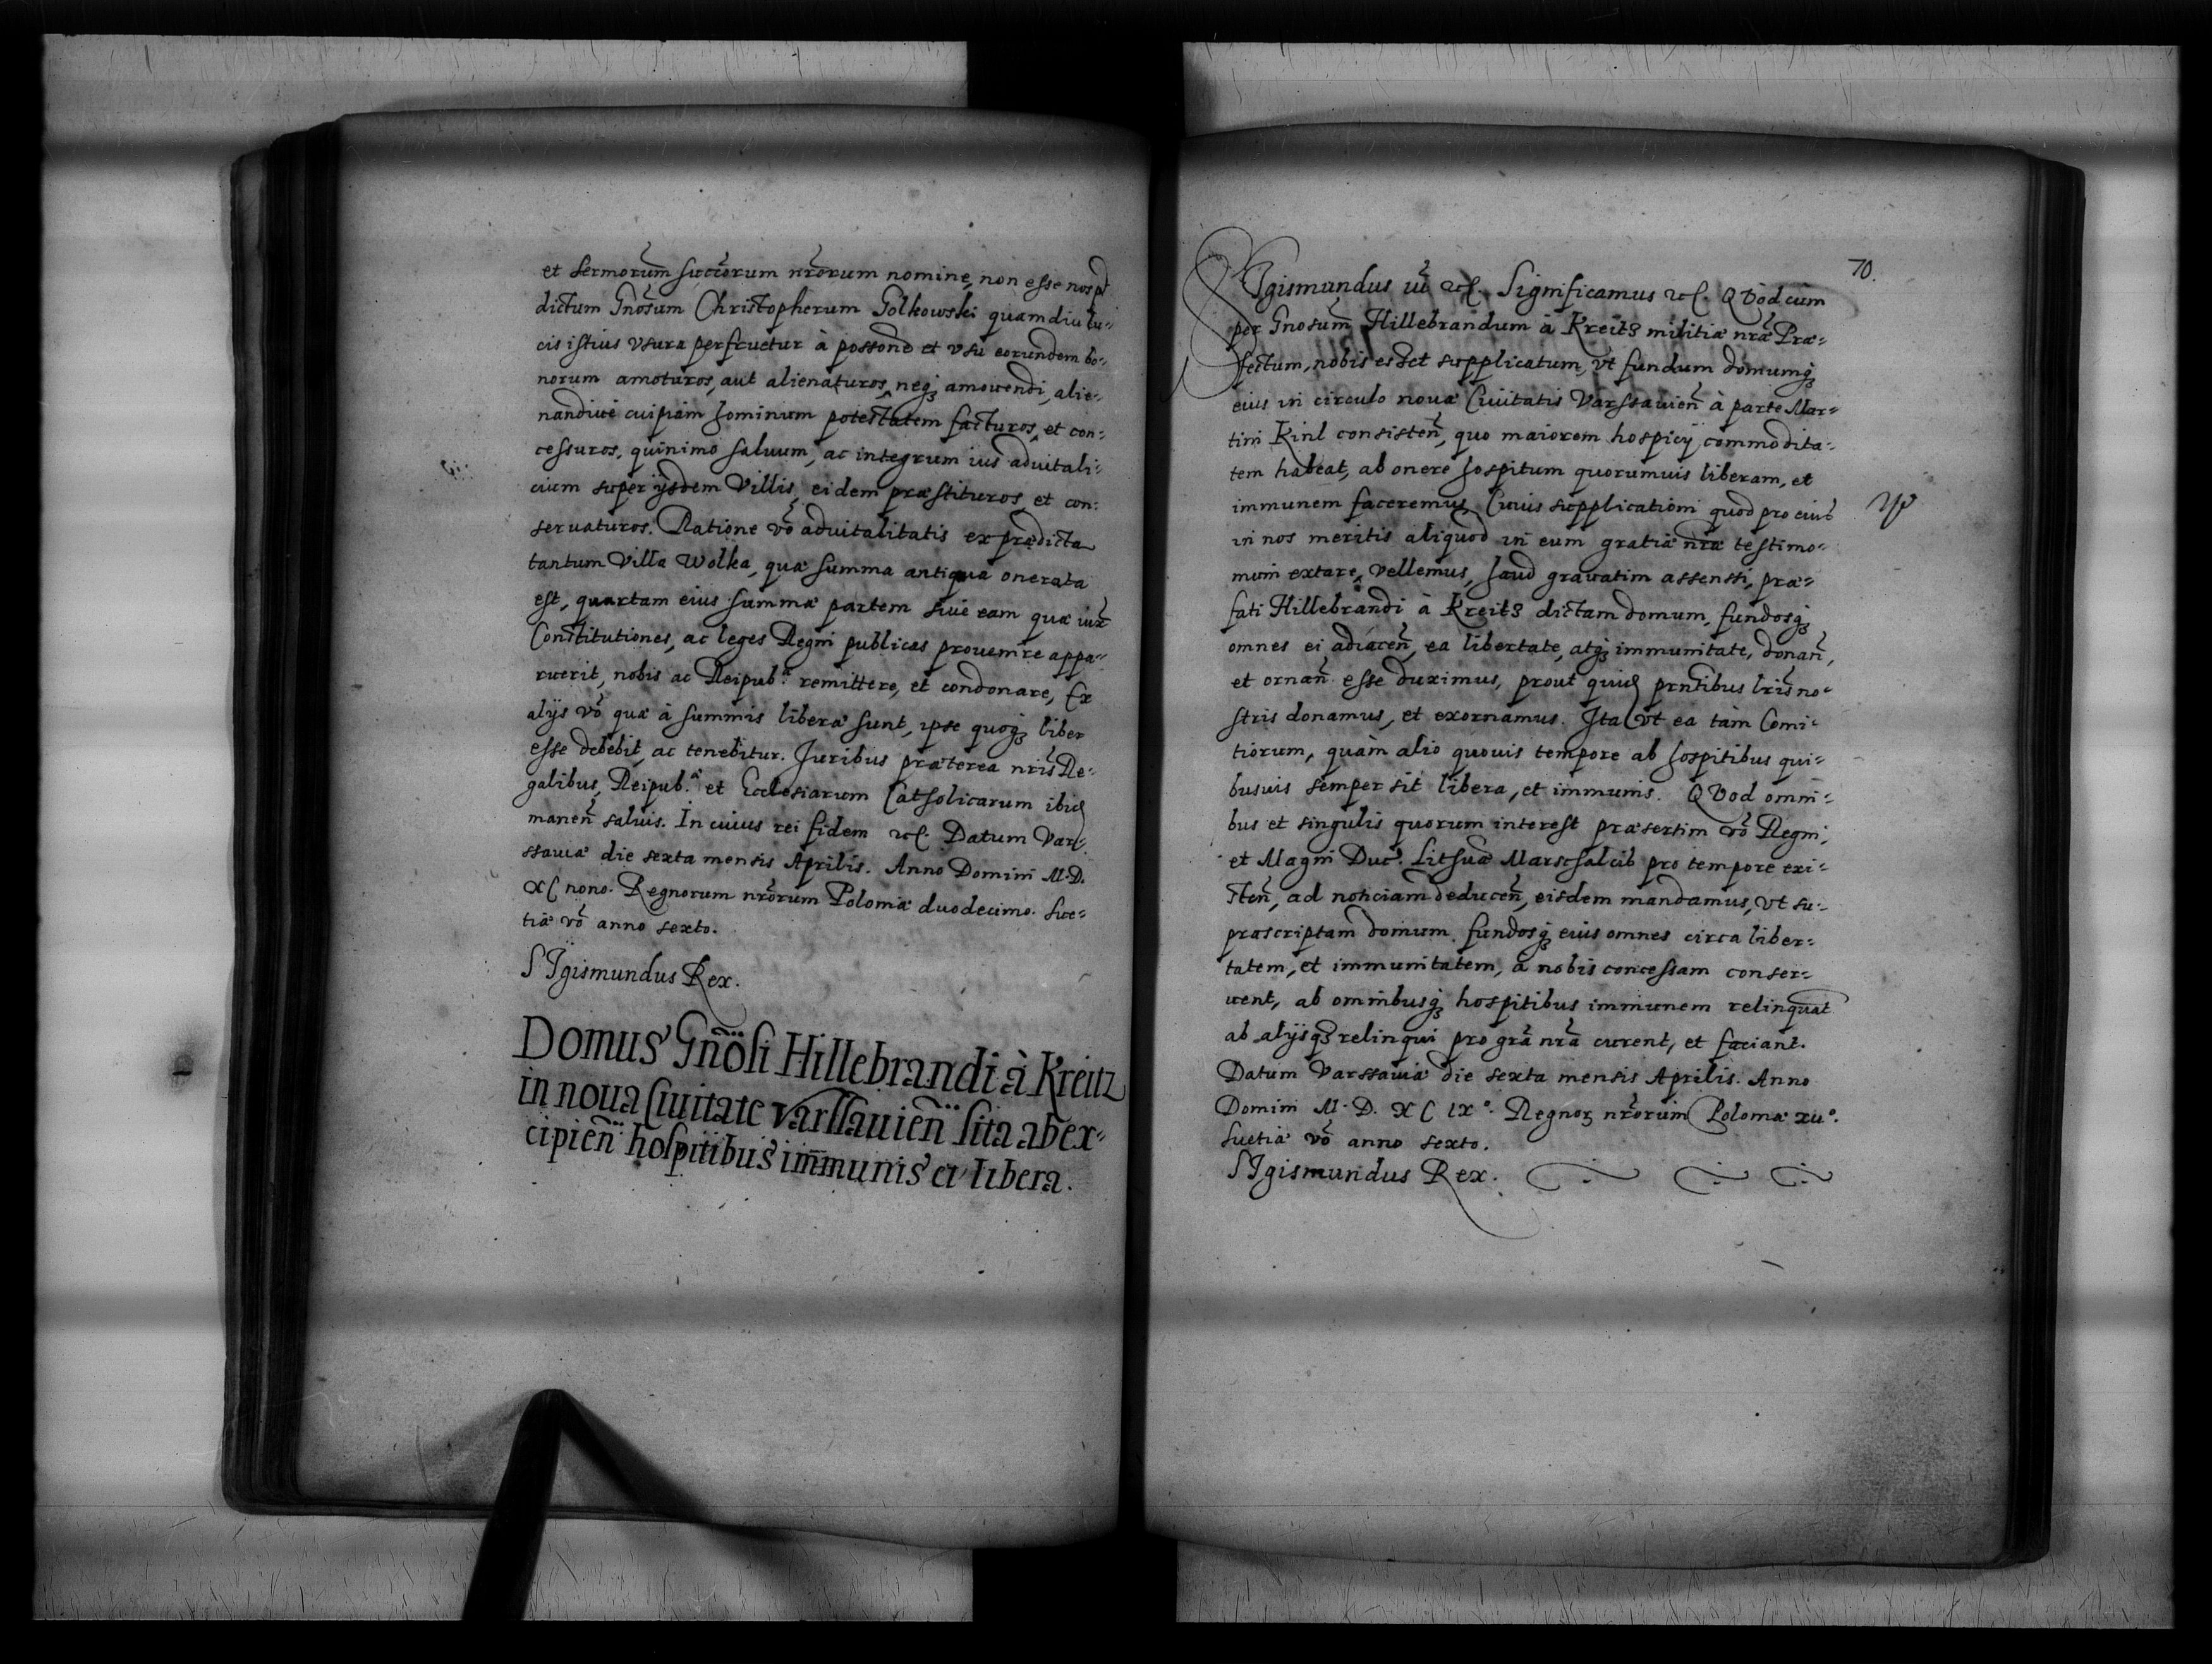 et Sermorum succ̃orum nr̃orum nomine, non esse nos p̃
dictum Gñosum Christopherum Golkowski quamdiu lu-
cis istius vsura perfruetur à possone et vsu eorundem bo-
norum amoturos, aut alienaturos, neq₃ amouendi, alie-
nandiue cuipiam hominum potestatem facturos, et con-
cessuros, quinimo saluum, ac integrum ius aduitali-
cium super ijsdem Villis, eidem præstituros, et con-
seruaturos. Ratione vo᷃ aduitalitatis ex prædicta
tantum Villa Wolka, quæ summa antiqua onerata
est, quartam eius summæ partem siue eam quæ iux᷃
Constitutiones, ac leges Regni publicas prouenire appa-
ruerit, nobis ac Reipub.ᵃ remittere, et condonare, Ex
alijs vo᷃ quæ à summis liberæ sunt, ipse quoq₃ liber
esse debebit, ac tenebitur. Juribus præterea nris᷃ Re-
galibus, Reipub.ᵃ et Ecclesiarum Catholicarum ibid
manen᷃ saluis. In cuius rei fidem etc. Datum Var-
ssauiæ die sexta mensis Aprilis. Anno Domini M.D.
XC nono. Regnorum nr̃orum Poloniæ duodecimo. Sue-
tiæ vo᷃ anno sexto.
SIgismundus Rex.
Domus Gñosi Hillebrandi à Kreitz
in noua Ciuitate Varssauien᷃ sita ab ex-
cipien᷃ hospitibus immunis et libera.
70.
SIgismundus iii etc. Significamus etc. QVod cùm
per Gnosum᷃ Hillebrandum à Kreitz militiæ nræ᷃ Præ-
fectum, nobis esset supplicatum, vt fundum domumq₃
eius in circulo nouæ Ciuitatis Varssauien᷃ à parte Mar-
tini Kinl consisten᷃, quo maiorem hospicij commodita-
tem habeat, ab onere hospitum quorumuis liberam, et
immunem faceremus, Cuius supplicationi quod pro eius
in nos meritis aliquod in eum gratiæ nræ testimo-
nium extare, vellemus, haud grauatim assensi, præ-
fati Hillebrandi à Kreitz dictam domum, fundosq₃
omnes ei adiacen᷃, ea libertate, atq₃ immunitate, donan᷃,
et ornan᷃ esse duximus, prout quid prntibus lris᷃ no-
stris donamus, et exornamus. Ita vt ea tàm Comi-
tiorum, quàm alio quouis tempore ab hospitibus qui-
busuis semper sit libera, et immunis. QVod omni-
bus et singulis quorum interest præsertim vo᷃ Regni,
et Magni Duc᷃. Lithuaniæ Marschalcib pro tempore exi-
sten᷃, ad noticiam deducen᷃, eisdem mandamus, vt su-
præscriptam domum fundosq₃ eius omnes circa liber-
tatem, et immunitatem, à nobis concessam conser-
uent, ab omnibusq₃ hospitibus immunem relinquat
ab alijsq₃ relinqui pro gra᷃ nra᷃ curent, et faciant.
Datum Varssauiæ die sexta mensis Aprilis. Anno
Domini M.D. XC ixº. Regnor₃ nr̃orum Poloniæ xiiº.
Suetiæ vo᷃ anno sexto.
SIgismundus Rex.